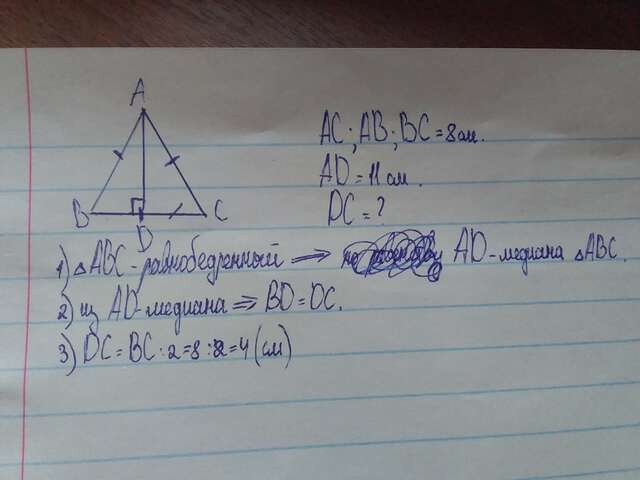 A
B
D
C
AC = AB, BC = 8 см.
AD = 11 см.
DC = ?
1) △ABC - равнобедренный ⇒ AD - медиана △ABC.
2) AD - медиана ⇒ BD = DC.
3) DC = BC : 2 = 8 : 2 = 4 (см)